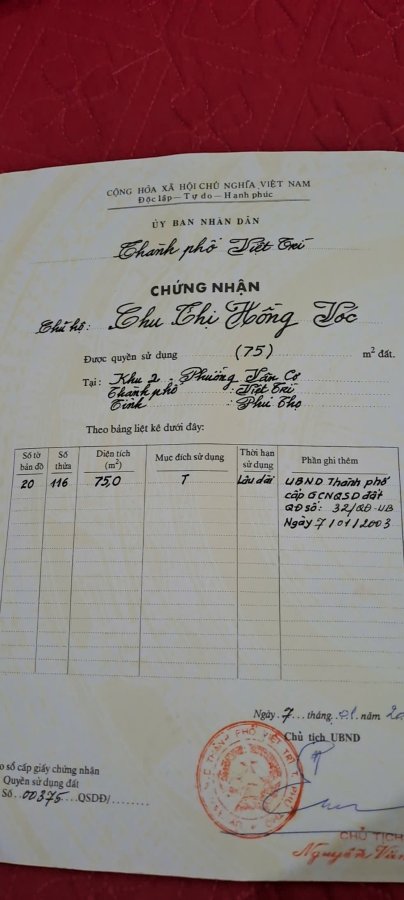 CỘNG HÒA XÃ HỘI CHỦ NGHĨA VIỆT NAM
Độc lập — Tự do — Hạnh phúc
ỦY BAN NHÂN DÂN
Thành phố Việt Trì
CHỨNG NHẬN
Chủ hộ: Chu Thị Hồng Vóc
Được quyền sử dụng (75) m² đất.
Tại: Khu 2 . Phường Tân
Thành phố : Việt Trì
Tỉnh : Phú Thọ
Theo bảng liệt kê dưới đây:
Số tờ bản đồ Số thửa Diện tích (m²) Mục đích sử dụng Thời hạn sử dụng Phần ghi thêm
20 116 75,0 T Lâu dài UBND Thành phố
cấp GCNQSD đất
QĐ số: 32/QĐ-UB
Ngày 7/01/2003
Ngày 7 tháng 01 năm 20
Chủ tịch UBND
o sổ cấp giấy chứng nhận
Quyền sử dụng đất
Số 00375 QSDĐ/
CHỦ TỊCH
Nguyễn